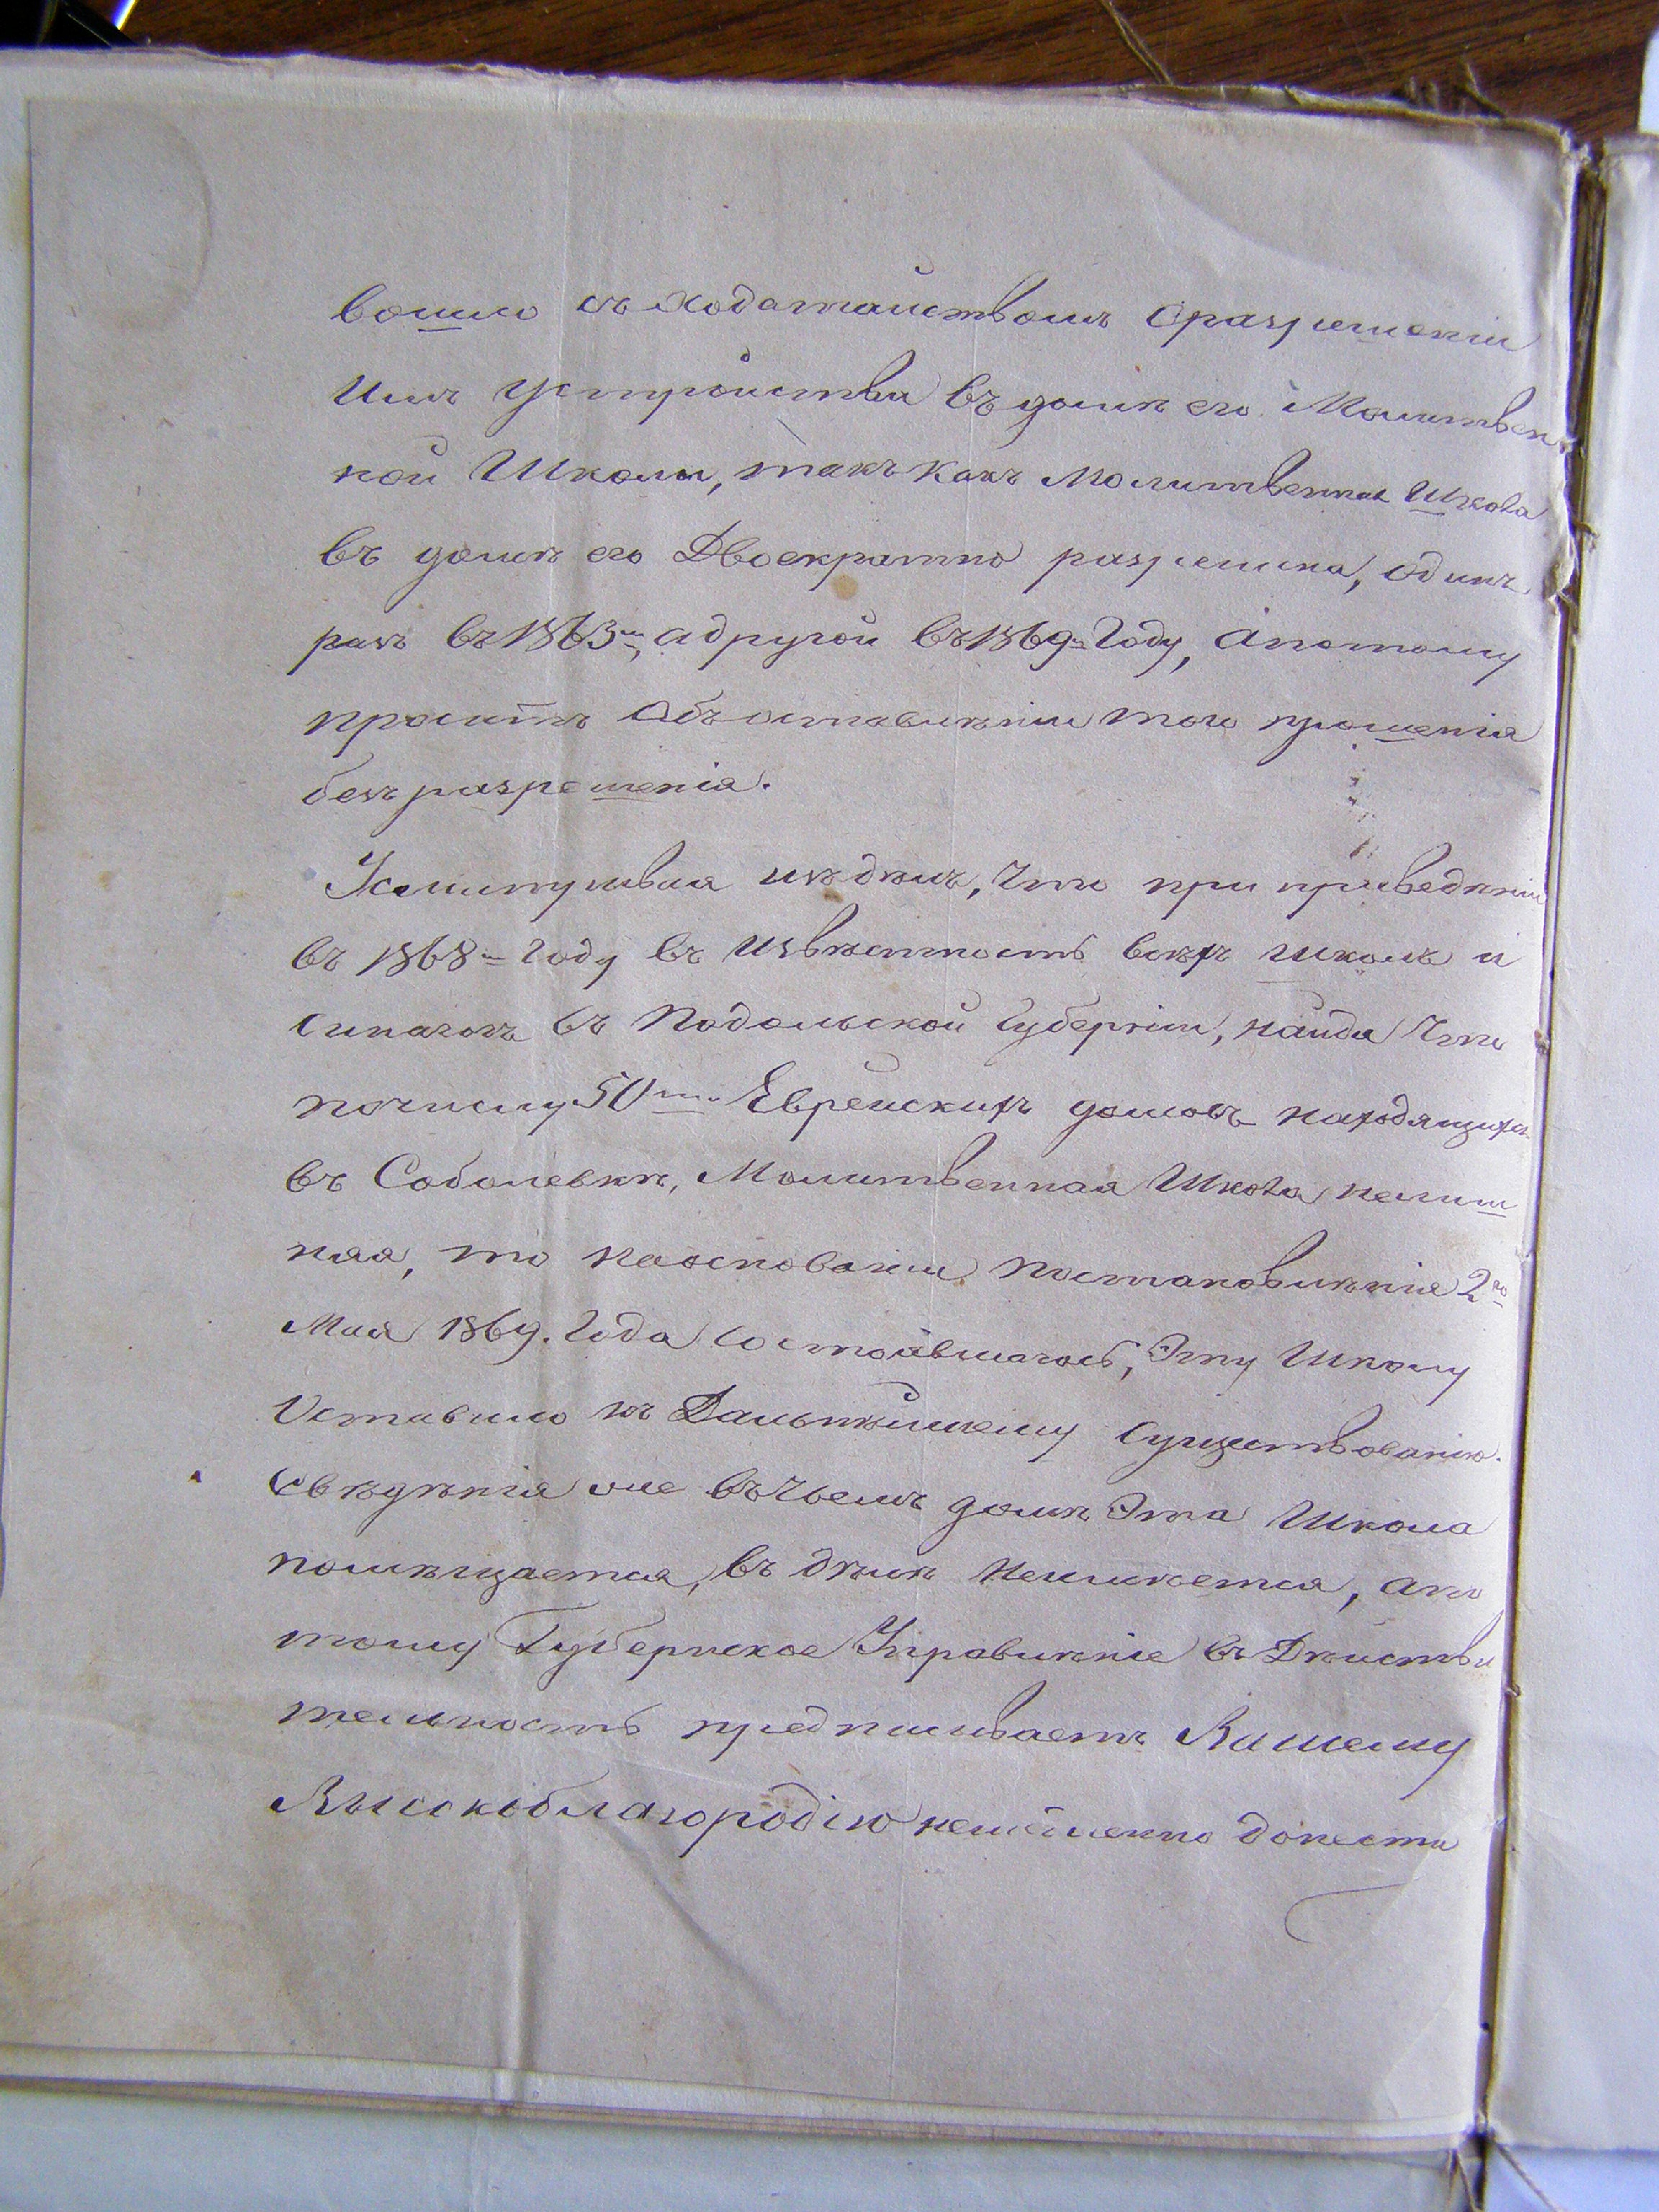 вошло съ ходатайствомъ о разрешеніи
имъ устройства въ доме его Молитвен
ной Школы, такъ какъ Молитвенная Школа
въ доме его Двоекратно разрешена, одинъ
разъ въ 1863м, а другой въ 1869м Году, а потому
проситъ объ оставленіи того прошенія
безъ разрешенія.
Усмитривая изъ делъ, что при приведеніи
въ 1868м Году въ извѣстность всѣхъ школъ и
Синагогъ въ Подольской Губерніи, найдя что
по числу 50ти Еврейскихъ домовъ находящихся
въ Соболевкѣ, Молитвенная Школа нелиш
няя, то на основаніи постановленія 2го
Мая 1869. Года состоявшагось, Эту Школу
Оставило къ Дальнѣйшему существованію.
Свѣдѣнія же въ чьемъ домѣ Эта Школа
помѣщается, въ дѣлѣ неимѣется, а по
тому Губернское Управленіе въ Дѣйстви
тельность предписываетъ Вашему
Высокоблагородію немедленно донести